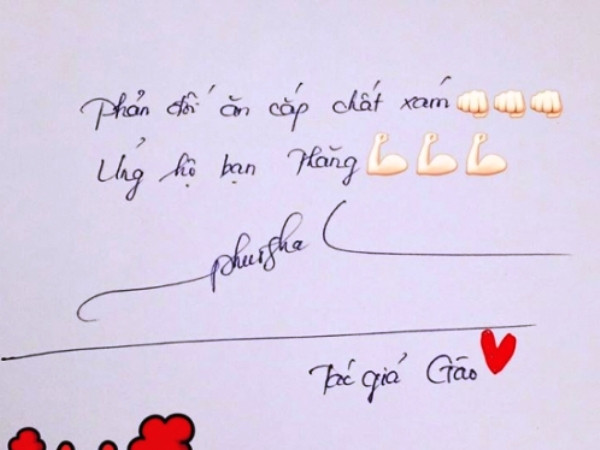 Phản đối ăn cắp chất xám👊🏻👊🏻👊🏻
Ủng hộ bạn Hằng💪🏻💪🏻💪🏻
Tác giả Gào